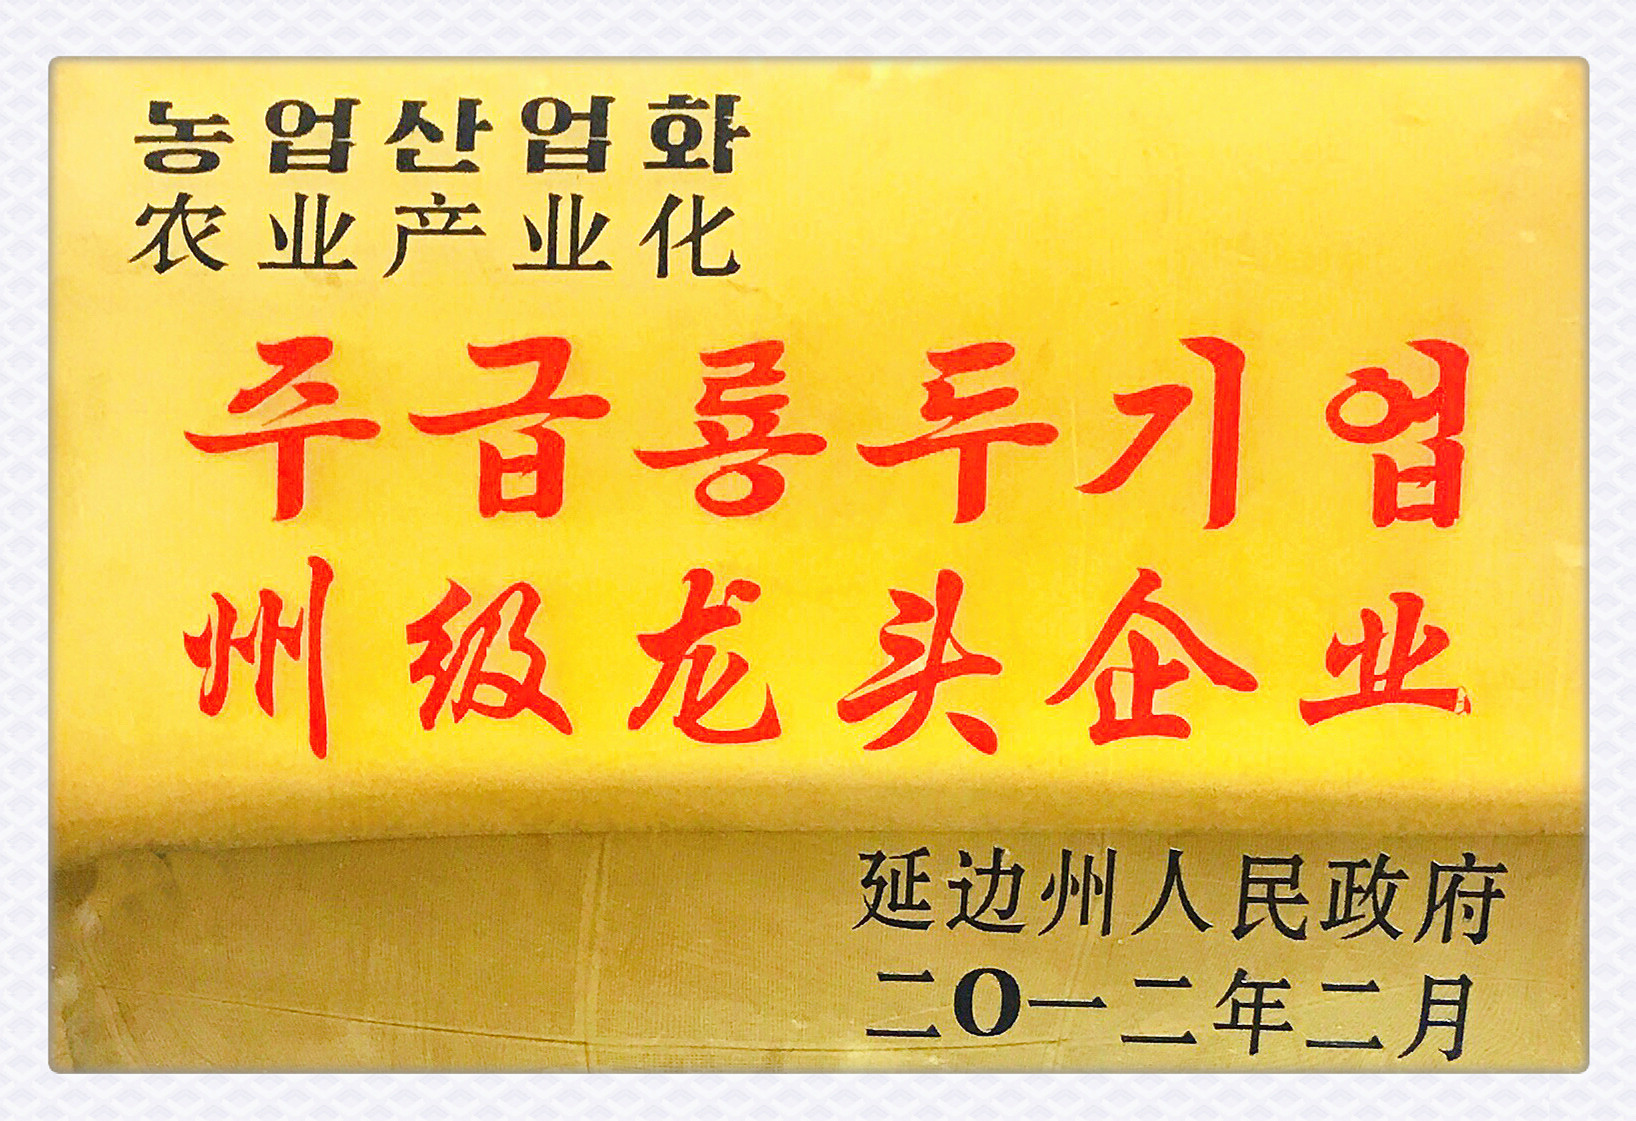 농업산업화
农业产业化
주급룡두기업
州级龙头企业
延边州人民政府
二0一二年二月